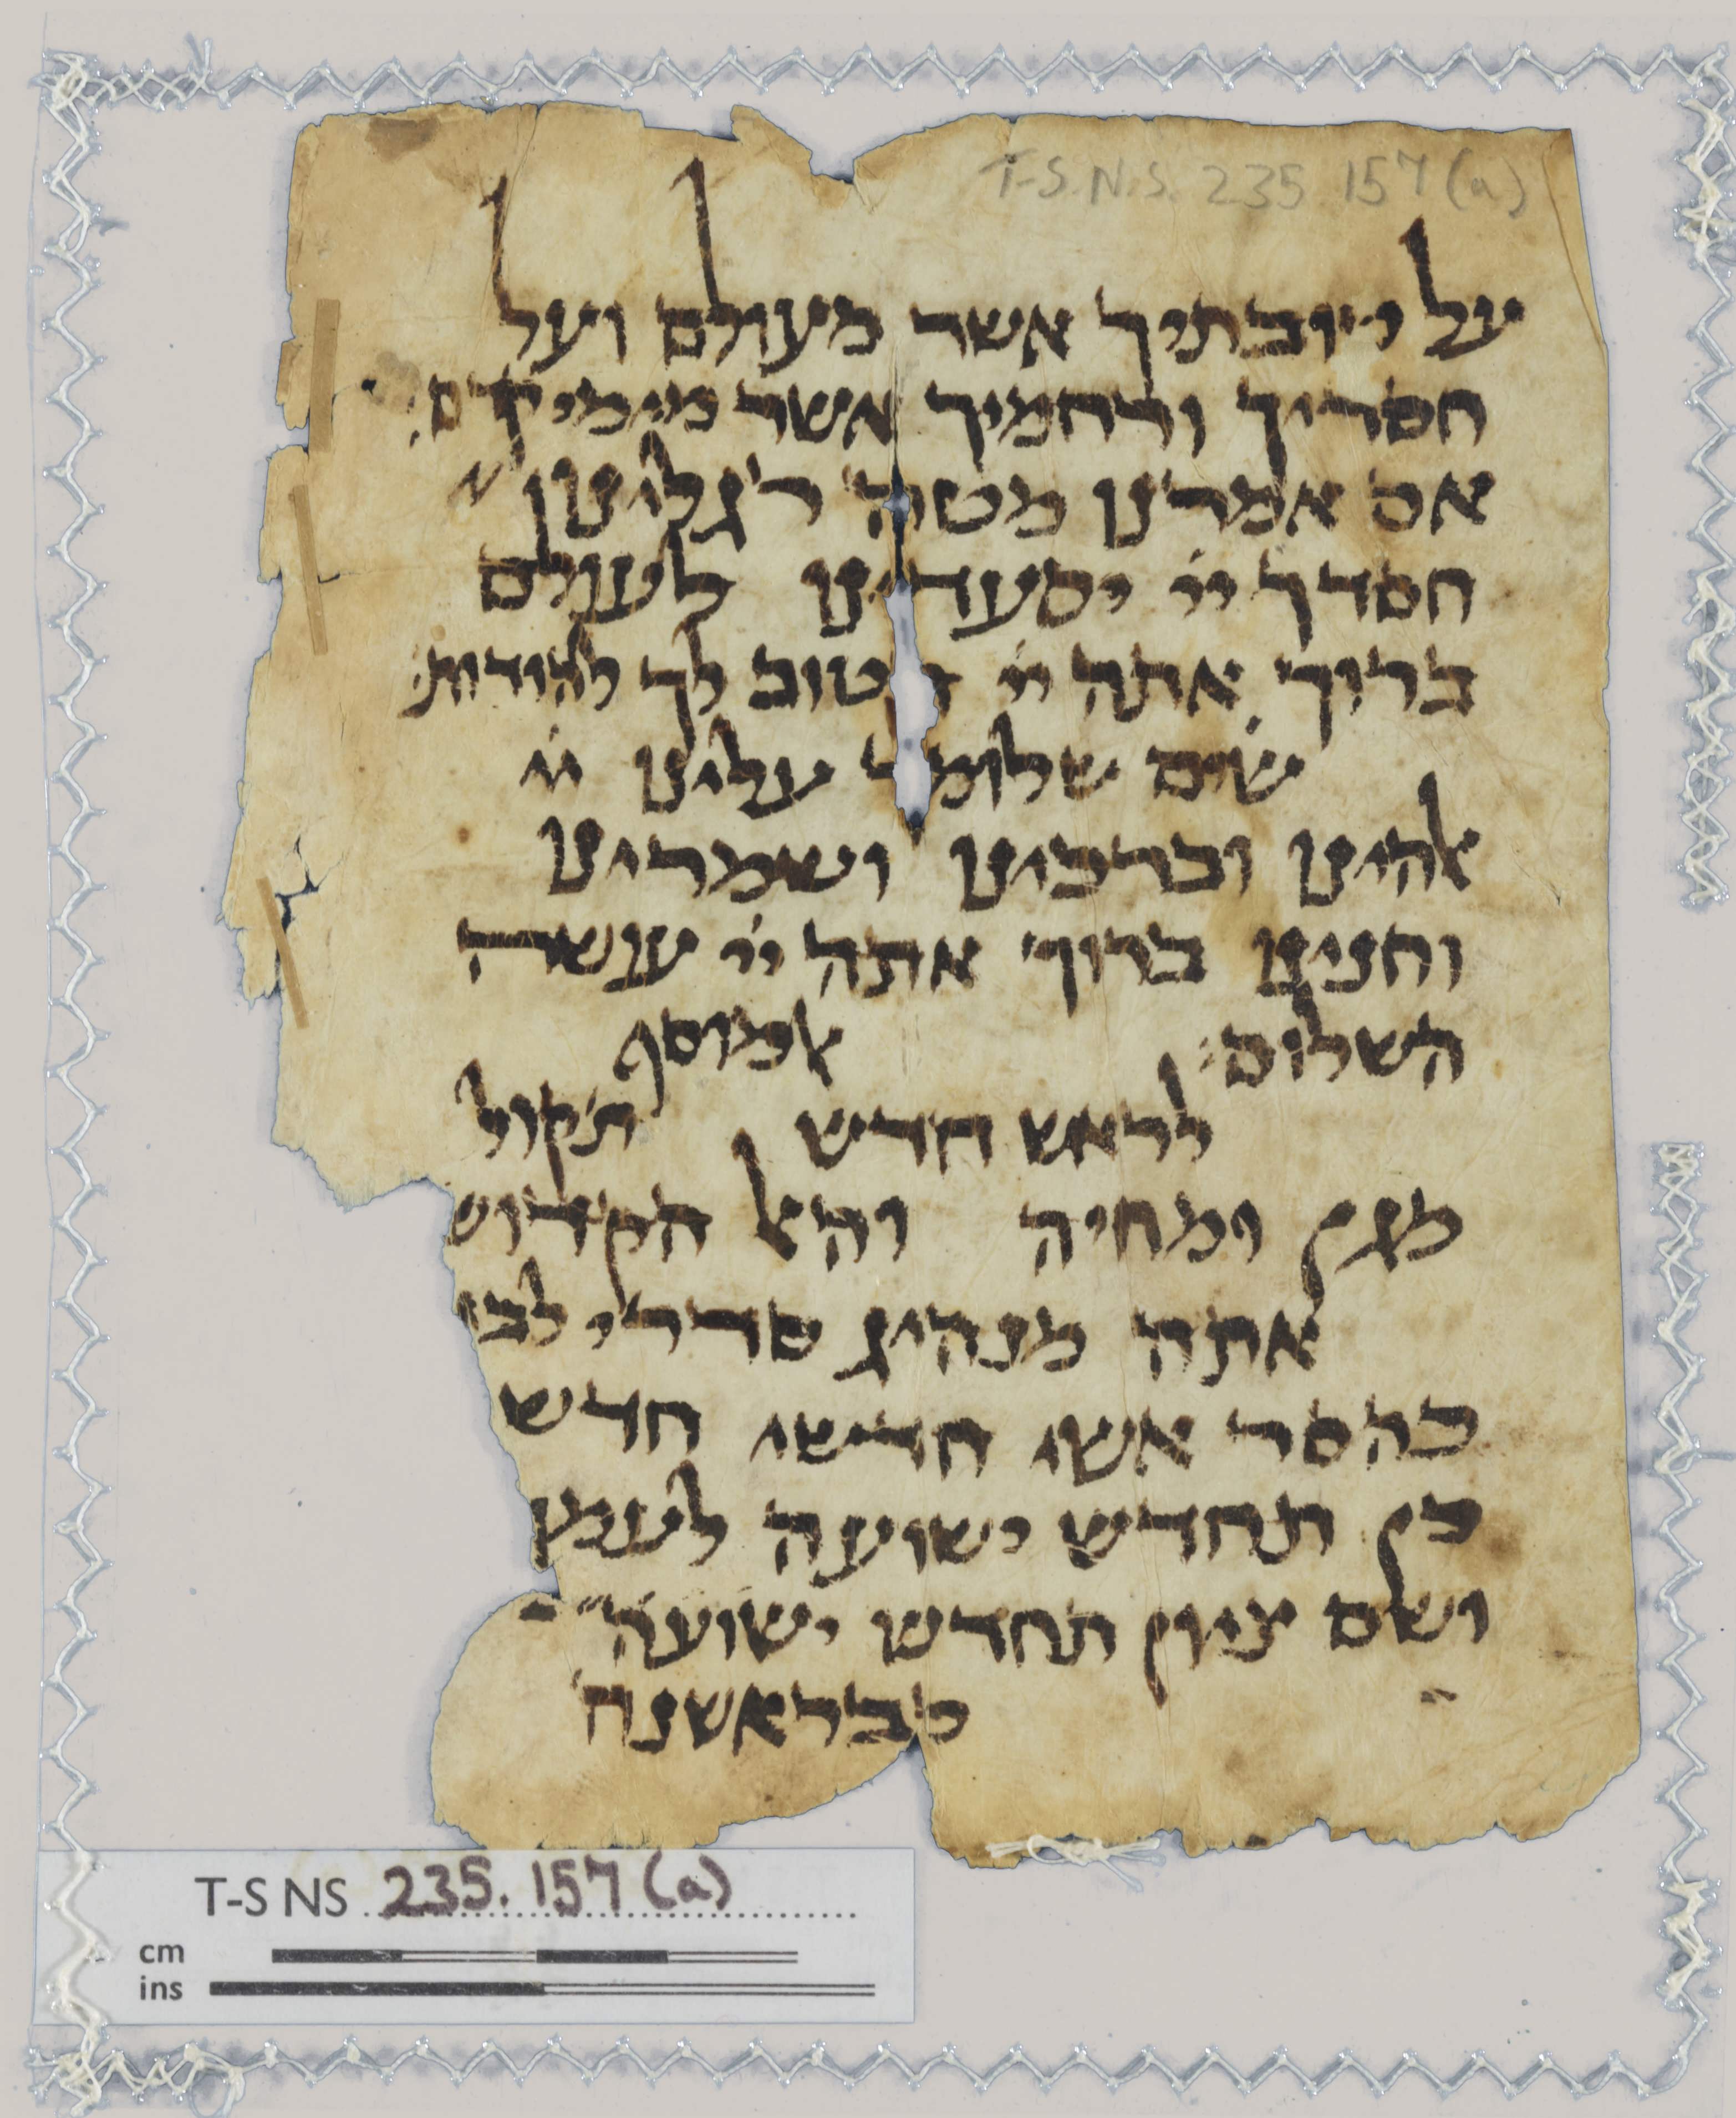 T-S.N.S. 235.157(a)
על טובתיך אשר מעולם ועל
חסדיך ורחמיך אשר מימי קדם
אם אמרנו מטה רגלינו
חסדך ייי יסעדינו לעולם
ברוך אתה ייי הטוב לך להודות
שים שלומך עלינו ייי
אלהינו וברכינו ושמרינו
וחנינו ברוך אתה ייי עושה
השלום אמוסף
לראש חדש תקול
מגן ומחיה והאל הקדוש
אתה מנהיג סדרי
חדשי חדש
כן תחדש ישועה לעמך
ושלם ציון תחדש ישועה
T-S NS 235.157(a)
cm
ins